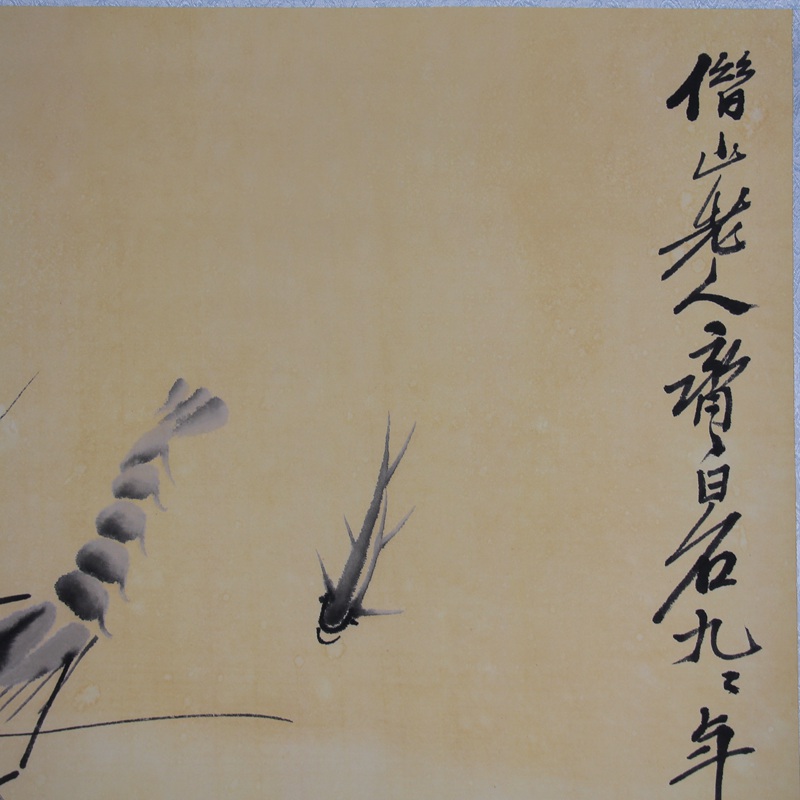 借山老人齊白石九二年